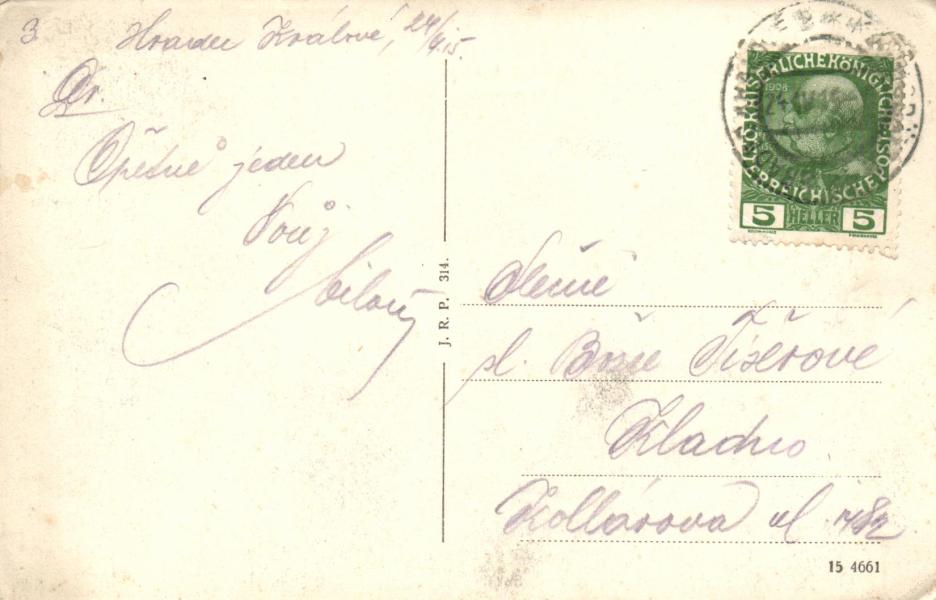 3
Hradec Králové, 24/4 15.
Dr.
Opětně jeden
Tvůj
J. R. P. 314.
1908
KAISERLICHE KÖNIGLICHE ÖSTERREICHISCHE POST
5 HELLER 5
Slečně
sl. Bože Tiserové
Kladno.
Kollárova ul
15 4661